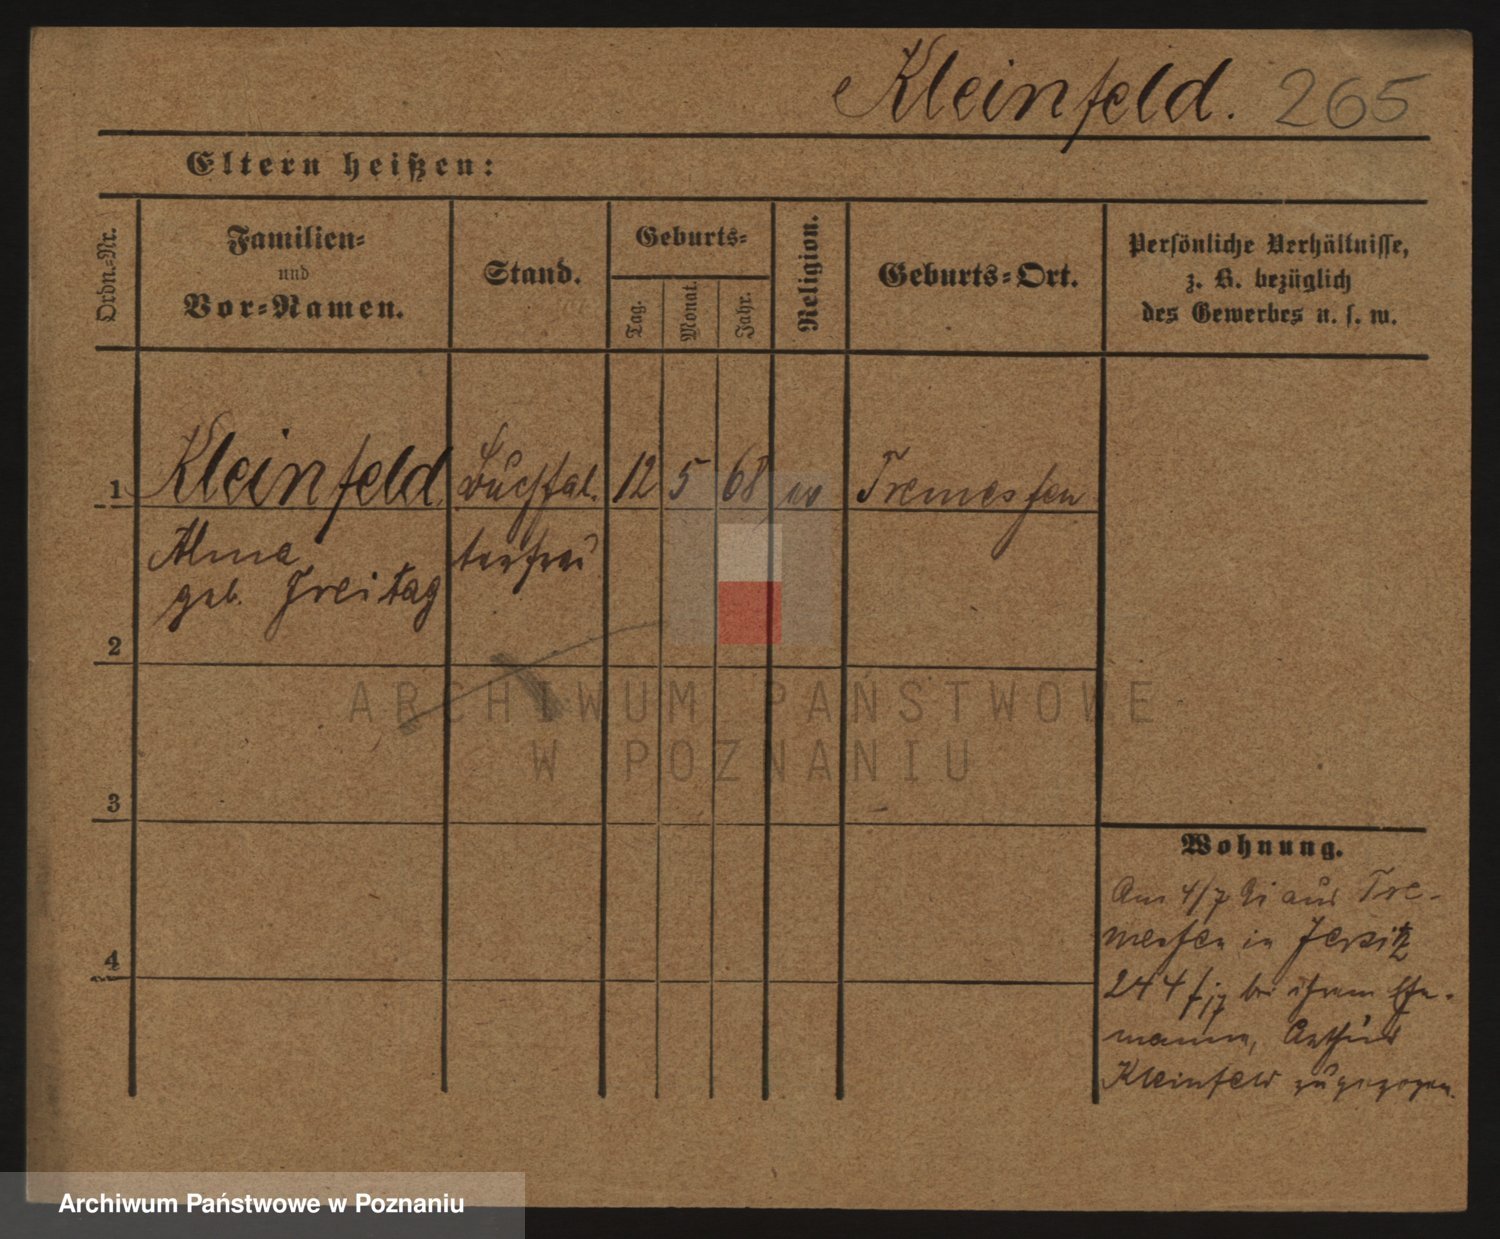 Kleinfeld. 265
Eltern heißen:
Ordn.-Nr.
Familien-
und
Vor-Namen.
Stand.
Geburts-
Tag.
Monat.
Jahr.
Religion.
Geburts-Ort.
Persönliche Verhältnisse,
z. B. bezüglich
des Gewerbes u. s. w.
1 Kleinfeld Buchhal- 12 5 68 ev Tremessen
Alma terfrau
geb. Freitag
2
3
4
Wohnung.
Am 4/7 91 aus Tre-
messen in Jersitz
244 bei ihrem Ehe-
manne, Arthur
Kleinfeld zugezogen.
ARCHIWUM PAŃSTWOWE
W POZNANIU
Archiwum Państwowe w Poznaniu